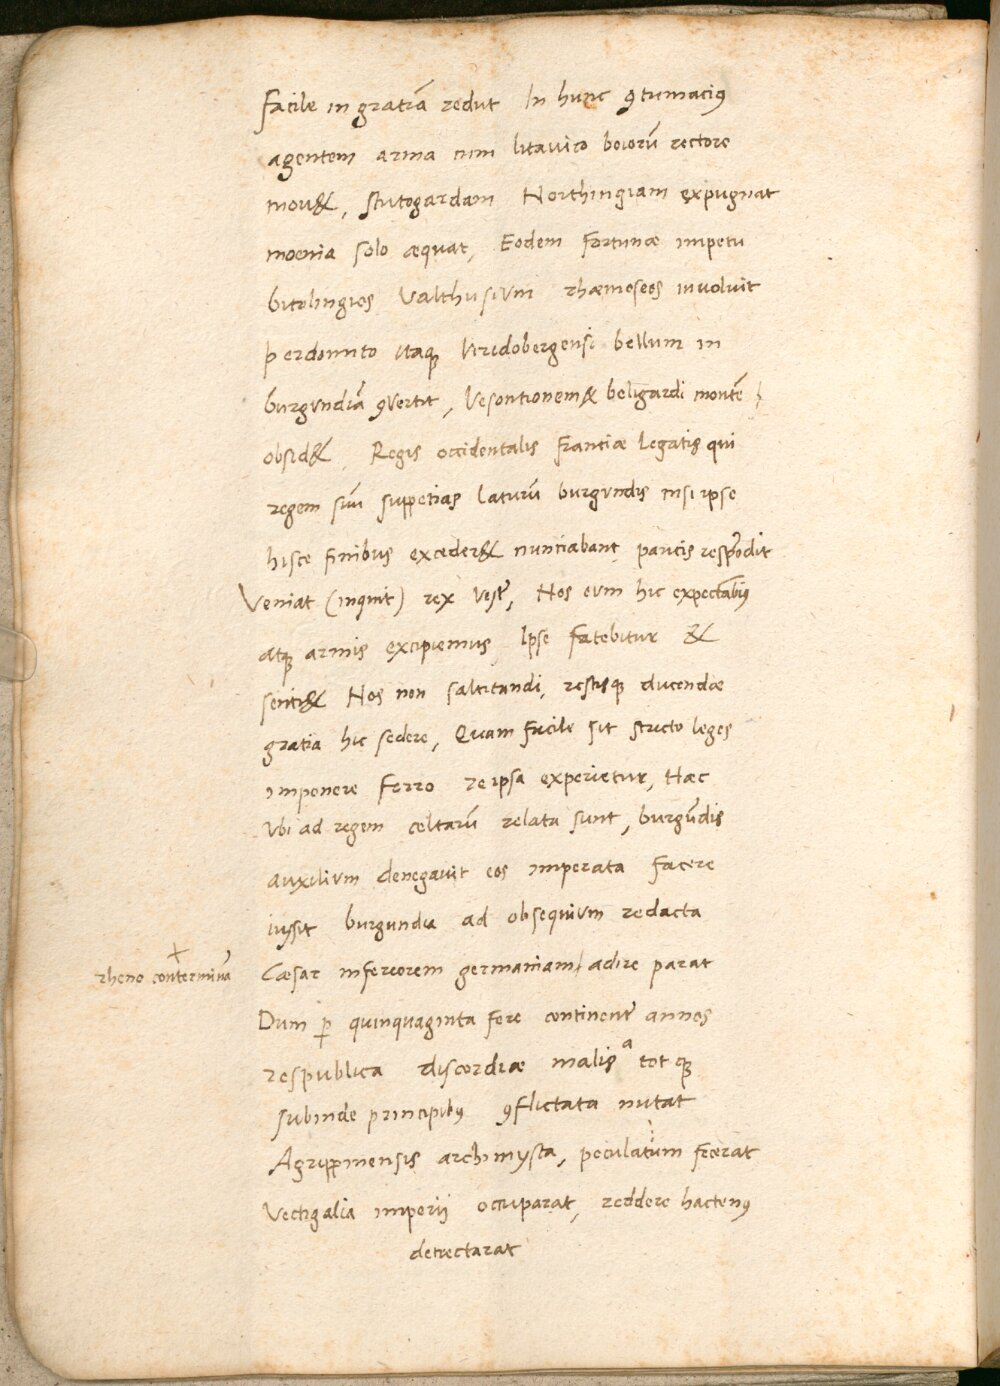 facile in gratiã redut In hunc ꝯtumaciꝰ
agentem arma cum litaviro boiorũ rectore
mou&, stutogardam Northingiam expugnat
moenia solo æquat, Eodem fortunæ impetu
bitolingios Valthusium rhæmoseos involuit
perdomito itaqꝫ Viridobergensi bellum in
burgundiã ꝯvertit, Vesontionem & beligardi montẽ
obsid&, Regis occidentalis franciæ legatis qui
regem sũũ suppetias laturũ burgundis nisi ipse
hisce finibus exceder& nunciabant paucis respõdit
Veniat (inquit) rex vestẽr, Nos eum hic expectabimꝰ
atqꝫ armis excipiemus, Ipse fatebitur &
senti& Nos non saltitandi, restisqꝫ ducendæ
gratia hic sedere, Quam facile sit stricto leges
imponere ferro reipsa experietur, Hæc
Vbi ad regem celtarũ relata sunt, burgũdis
auxilium denegauit eos imperata facere
iussit burgundia ad obsequium redacta
rheno conterminã Cæsar inferiorem germaniam adire parat
Dum ꝑ quinquaginta fere continentẽr annos
respublica discordiæ malis a tot qꝫ
subinde principibꝰ ꝯflictata nutat
Agrippinensis archimysta, peculatum fecerat
Vectigalia imperij occuparat, reddere hactenꝰ
detrectarat